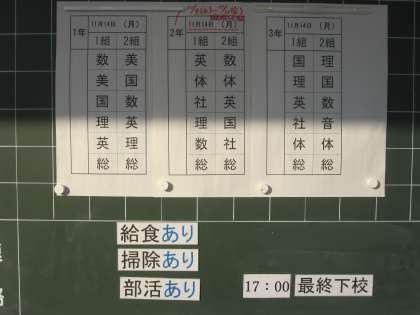 1年 11月14日 (月)
1組 2組
数 美
美 国
国 数
理 英
英 理
総 総
2年 11月14日 (月)
1組 2組
英 数
体 体
社 英
理 国
数 社
総 総
3年 11月14日 (月)
1組 2組
国 理
理 国
英 数
社 音
体 体
総 総
給食あり
掃除あり
部活あり
17:00 最終下校